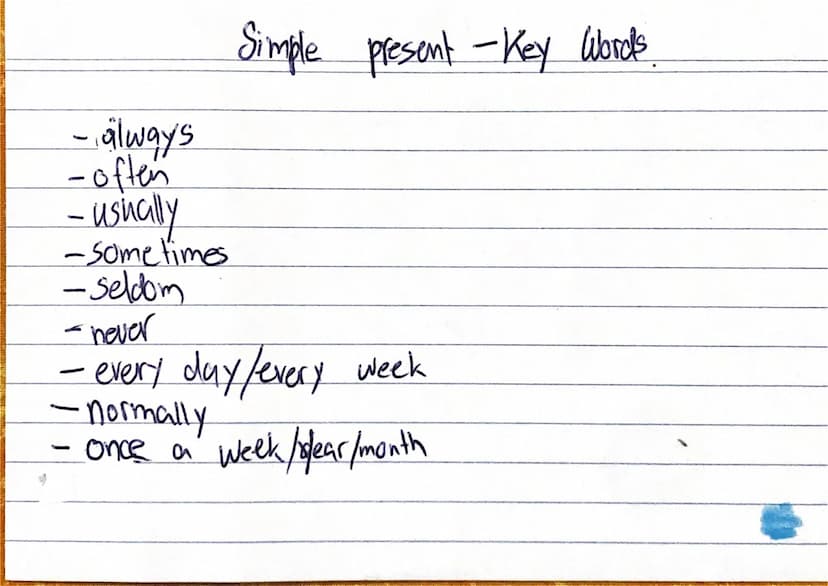 Simple present - Key Words.
- always
- often
- usually
- sometimes
- seldom
- never
- every day/every week
- normally
- once a week/year/month